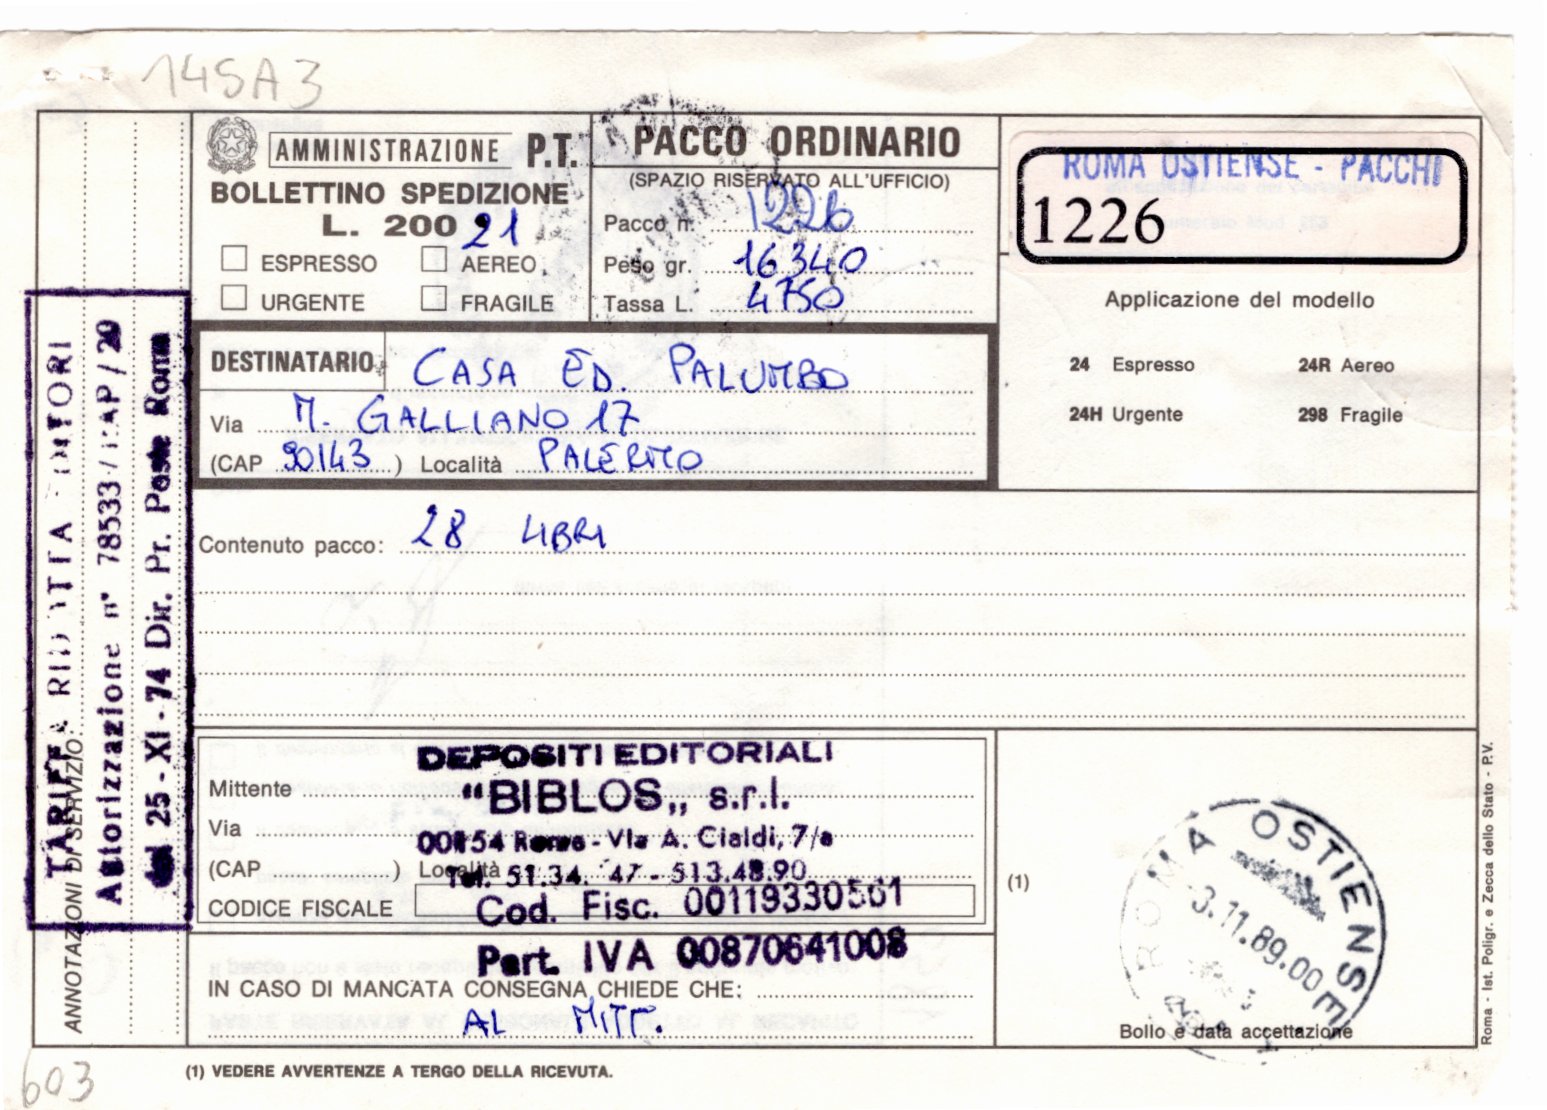 145A3
AMMINISTRAZIONE P.T.
BOLLETTINO SPEDIZIONE
L. 200 21
ESPRESSO AEREO
URGENTE FRAGILE
PACCO ORDINARIO
(SPAZIO RISERVATO ALL'UFFICIO)
Pacco n. 1226
Peso gr. 16340
Tassa L. 4750
ROMA OSTIENSE - PACCHI
1226
Applicazione del modello
24 Espresso 24R Aereo
24H Urgente 298 Fragile
DESTINATARIO CASA ED. PALUMBO
Via M. GALLIANO 17
(CAP 90143 ) Località PALERMO
Contenuto pacco: 28 LIBRI
ANNOTAZIONI DI SERVIZIO
TARIFFA RIDOTTA EDITORI
Autorizzazione n° 78533/ /20
del 25-XI-74 Dir. Pr. Poste Roma
DEPOSITI EDITORIALI
Mittente "BIBLOS„ s.r.l.
Via 00154 Roma - Via A. Cialdi, 7/a
(CAP ) Località Tel. 51.34. 47 - 513.48.90
CODICE FISCALE Cod. Fisc. 00119330561
Part. IVA 00870641008
IN CASO DI MANCATA CONSEGNA CHIEDE CHE:
AL MITT.
(1)
ROMA OSTIENSE
3.11.89.00
Bollo e data accettazione
Roma - Ist. Poligr. e Zecca dello Stato - P.V.
(1) VEDERE AVVERTENZE A TERGO DELLA RICEVUTA.
603